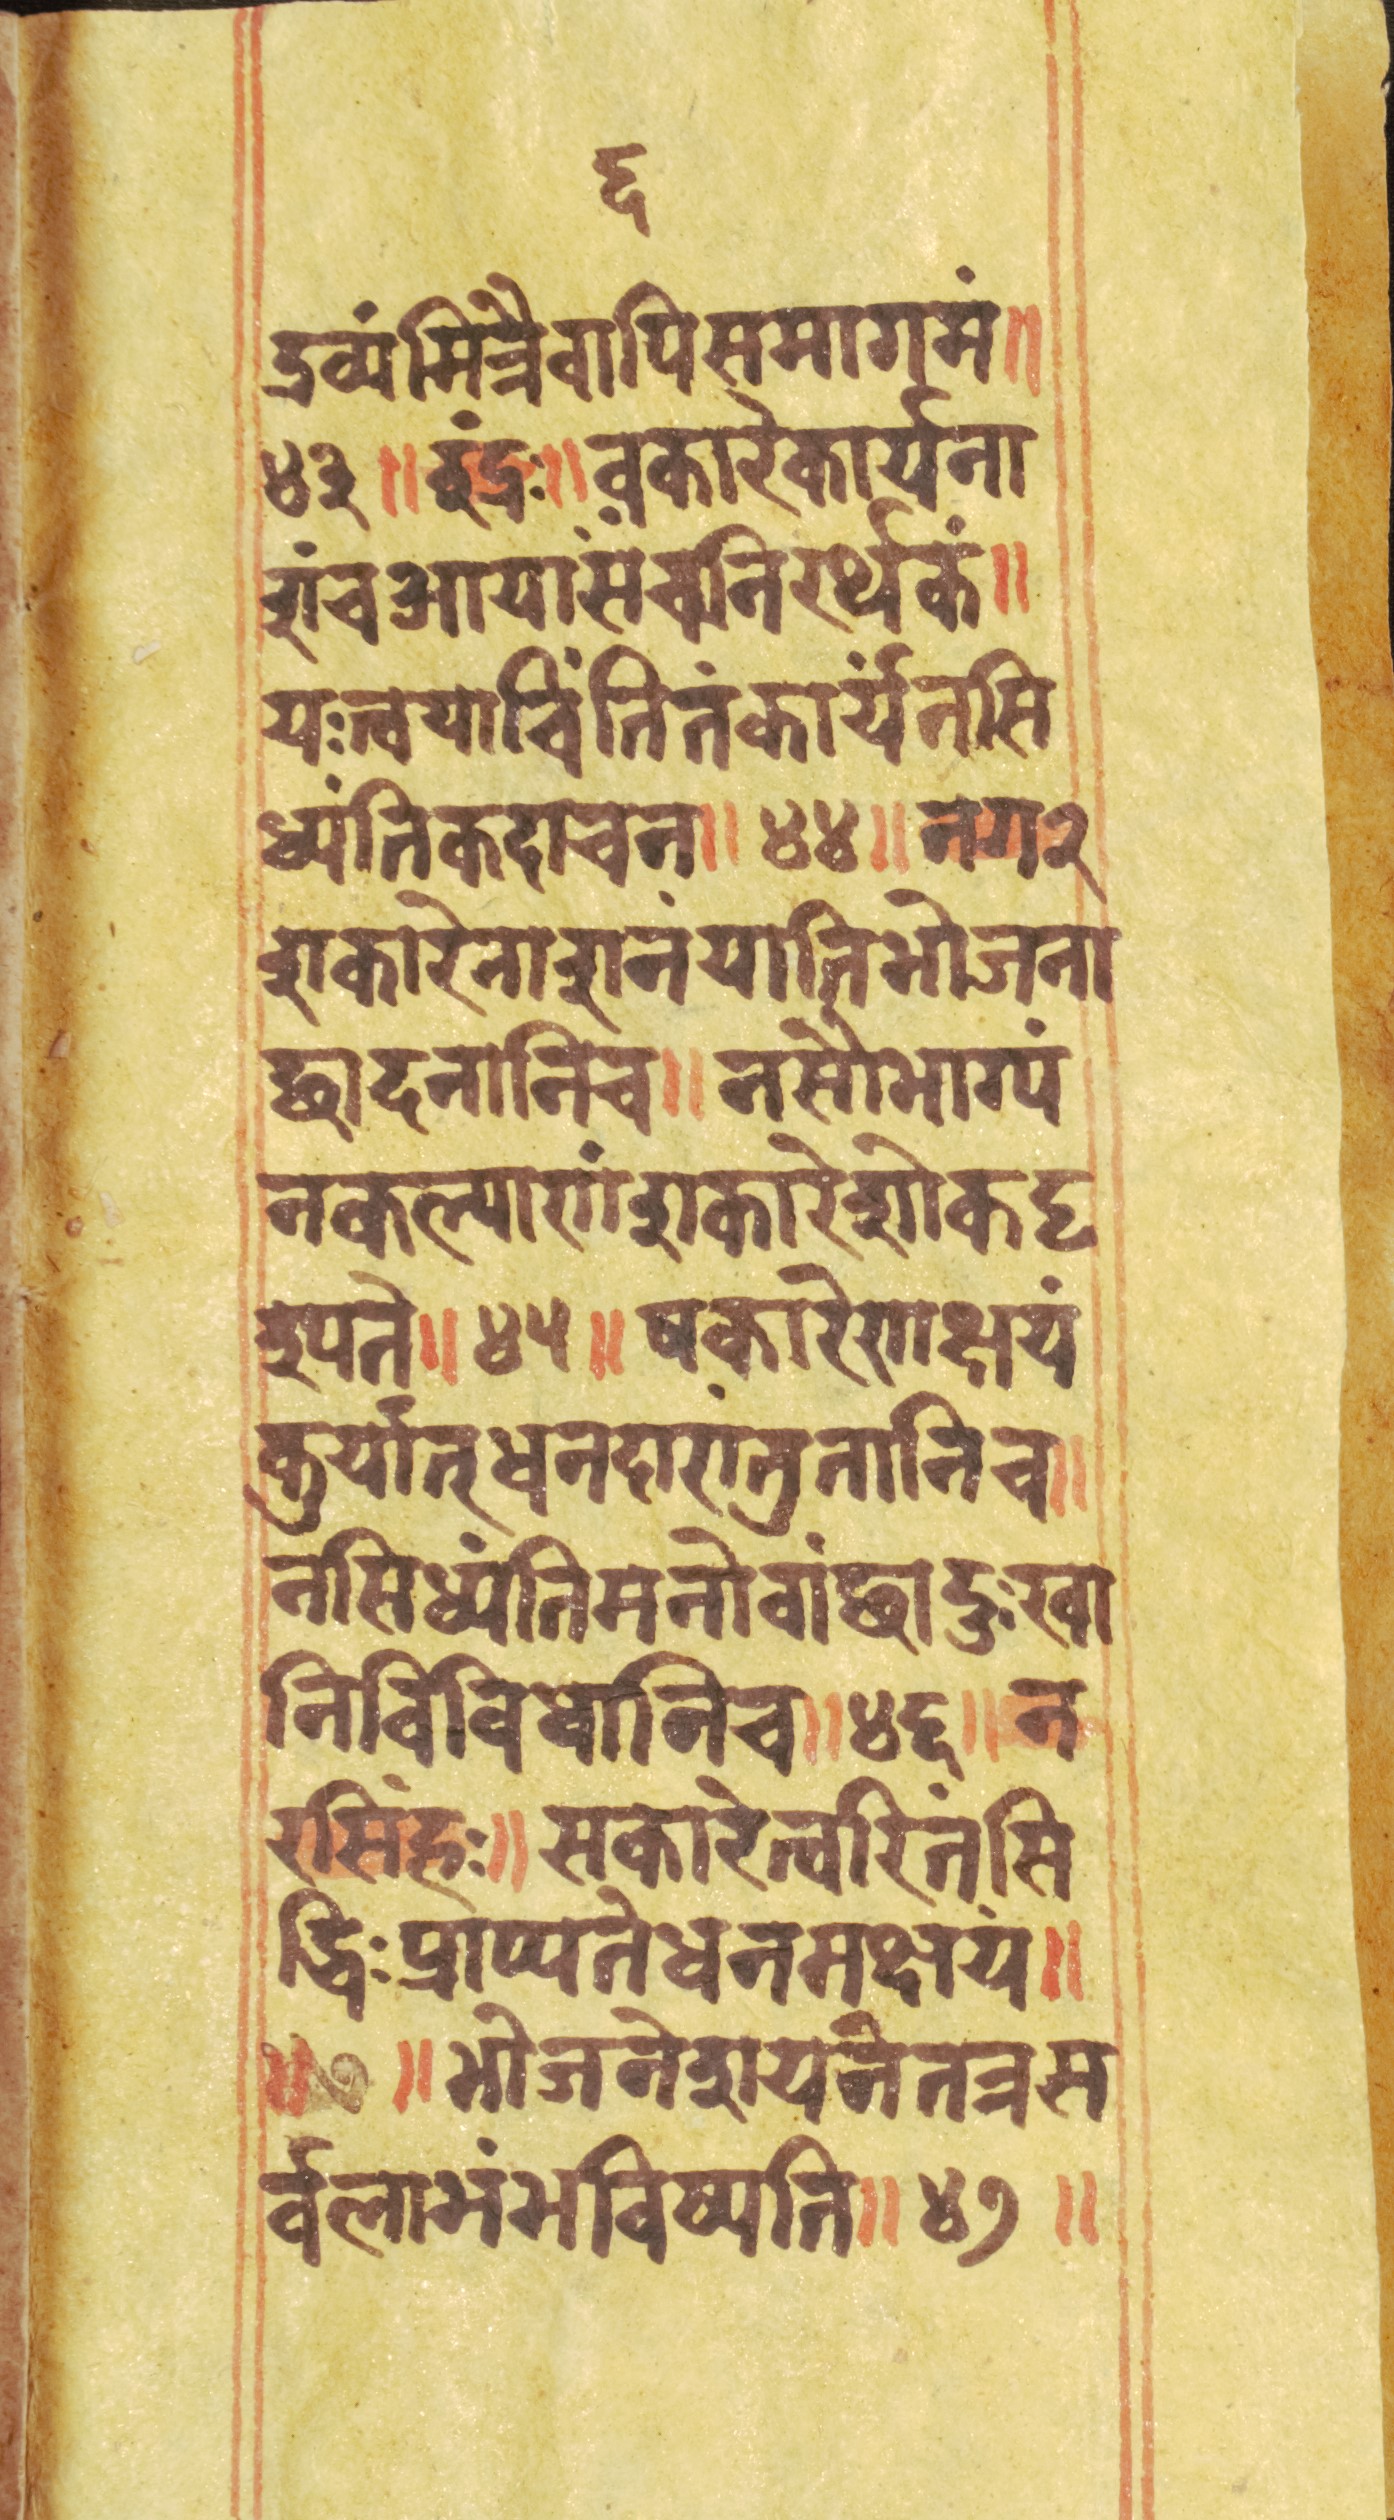 ६
द्रव्यंमित्रैवापिसमागमं॥
४३॥ इंद्रः॥ वकारेकार्यना
शंचआयांसंचनिरर्थकं॥
यःत्वयाचिंतितंकार्यंनसि
ध्यंतिकदाचन॥ ४४॥ नग२
शकारेनाशनंयातिभोजना
छादनानिच॥ नसौभाग्यं
नकल्याणंशकारेशोकदृ
श्यते॥ ४५॥ षकारेणक्षयं
कुर्यात्धनदारांसुतानिच॥
नसिध्यंतिमनोवांछादुःखा
निविविधानिच॥४६॥ न
रसिंहः॥ सकारेत्वरितंसि
द्धिःप्राप्यतेधनमक्षयं॥
॥भोजनेशयनेतत्रस
र्वलाभंभविष्यति॥ ४७॥